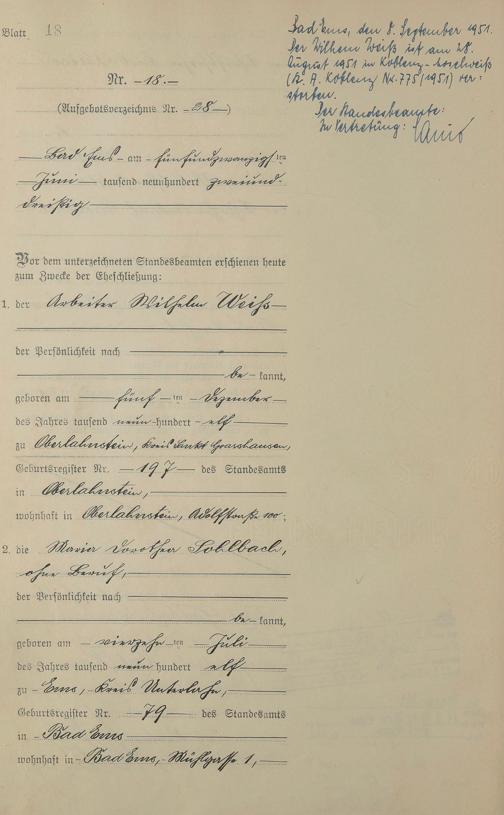 Blatt 18
Nr. -18.-
(Aufgebotsverzeichnis Nr. -28-)
Bad Ems - am - fünfundzwanzigsten
Juni tausend neunhundert zweiund-
dreißig
Vor dem unterzeichneten Standesbeamten erschienen heute
zum Zwecke der Eheschließung:
1. der Arbeiter Wilhelm Weiß
der Persönlichkeit nach
be-kannt,
geboren am fünf ten Dezember
des Jahres tausend neun-hundert elf
zu Oberlahnstein, Kreis Sankt Goarshausen,
Geburtsregister Nr. -197- des Standesamts
in Oberlahnstein,
wohnhaft in Oberlahnstein, Adolfstraße 100;
2. die Maria Dorothea Sohlbach,
ohne Beruf,
der Persönlichkeit nach
be-kannt,
geboren am vierzehn ten Juli
des Jahres tausend neun hundert elf
zu - Ems, - Kreis Unterlahn,
Geburtsregister Nr. -79- des Standesamts
in - Bad Ems
wohnhaft in - Bad Ems, - Mühlgasse 1,
Bad Ems, den 8. September 1951.
Der Wilhelm Weiß ist am 28.
August 1951 in Koblenz-Moselweiß
(St. A. Koblenz Nr. 775/1951) ver-
storben.
Der Standesbeamte:
In Vertretung: